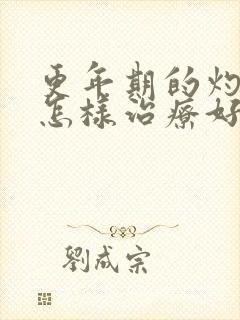 更年期的灼
怎樣治療好
劉成宗